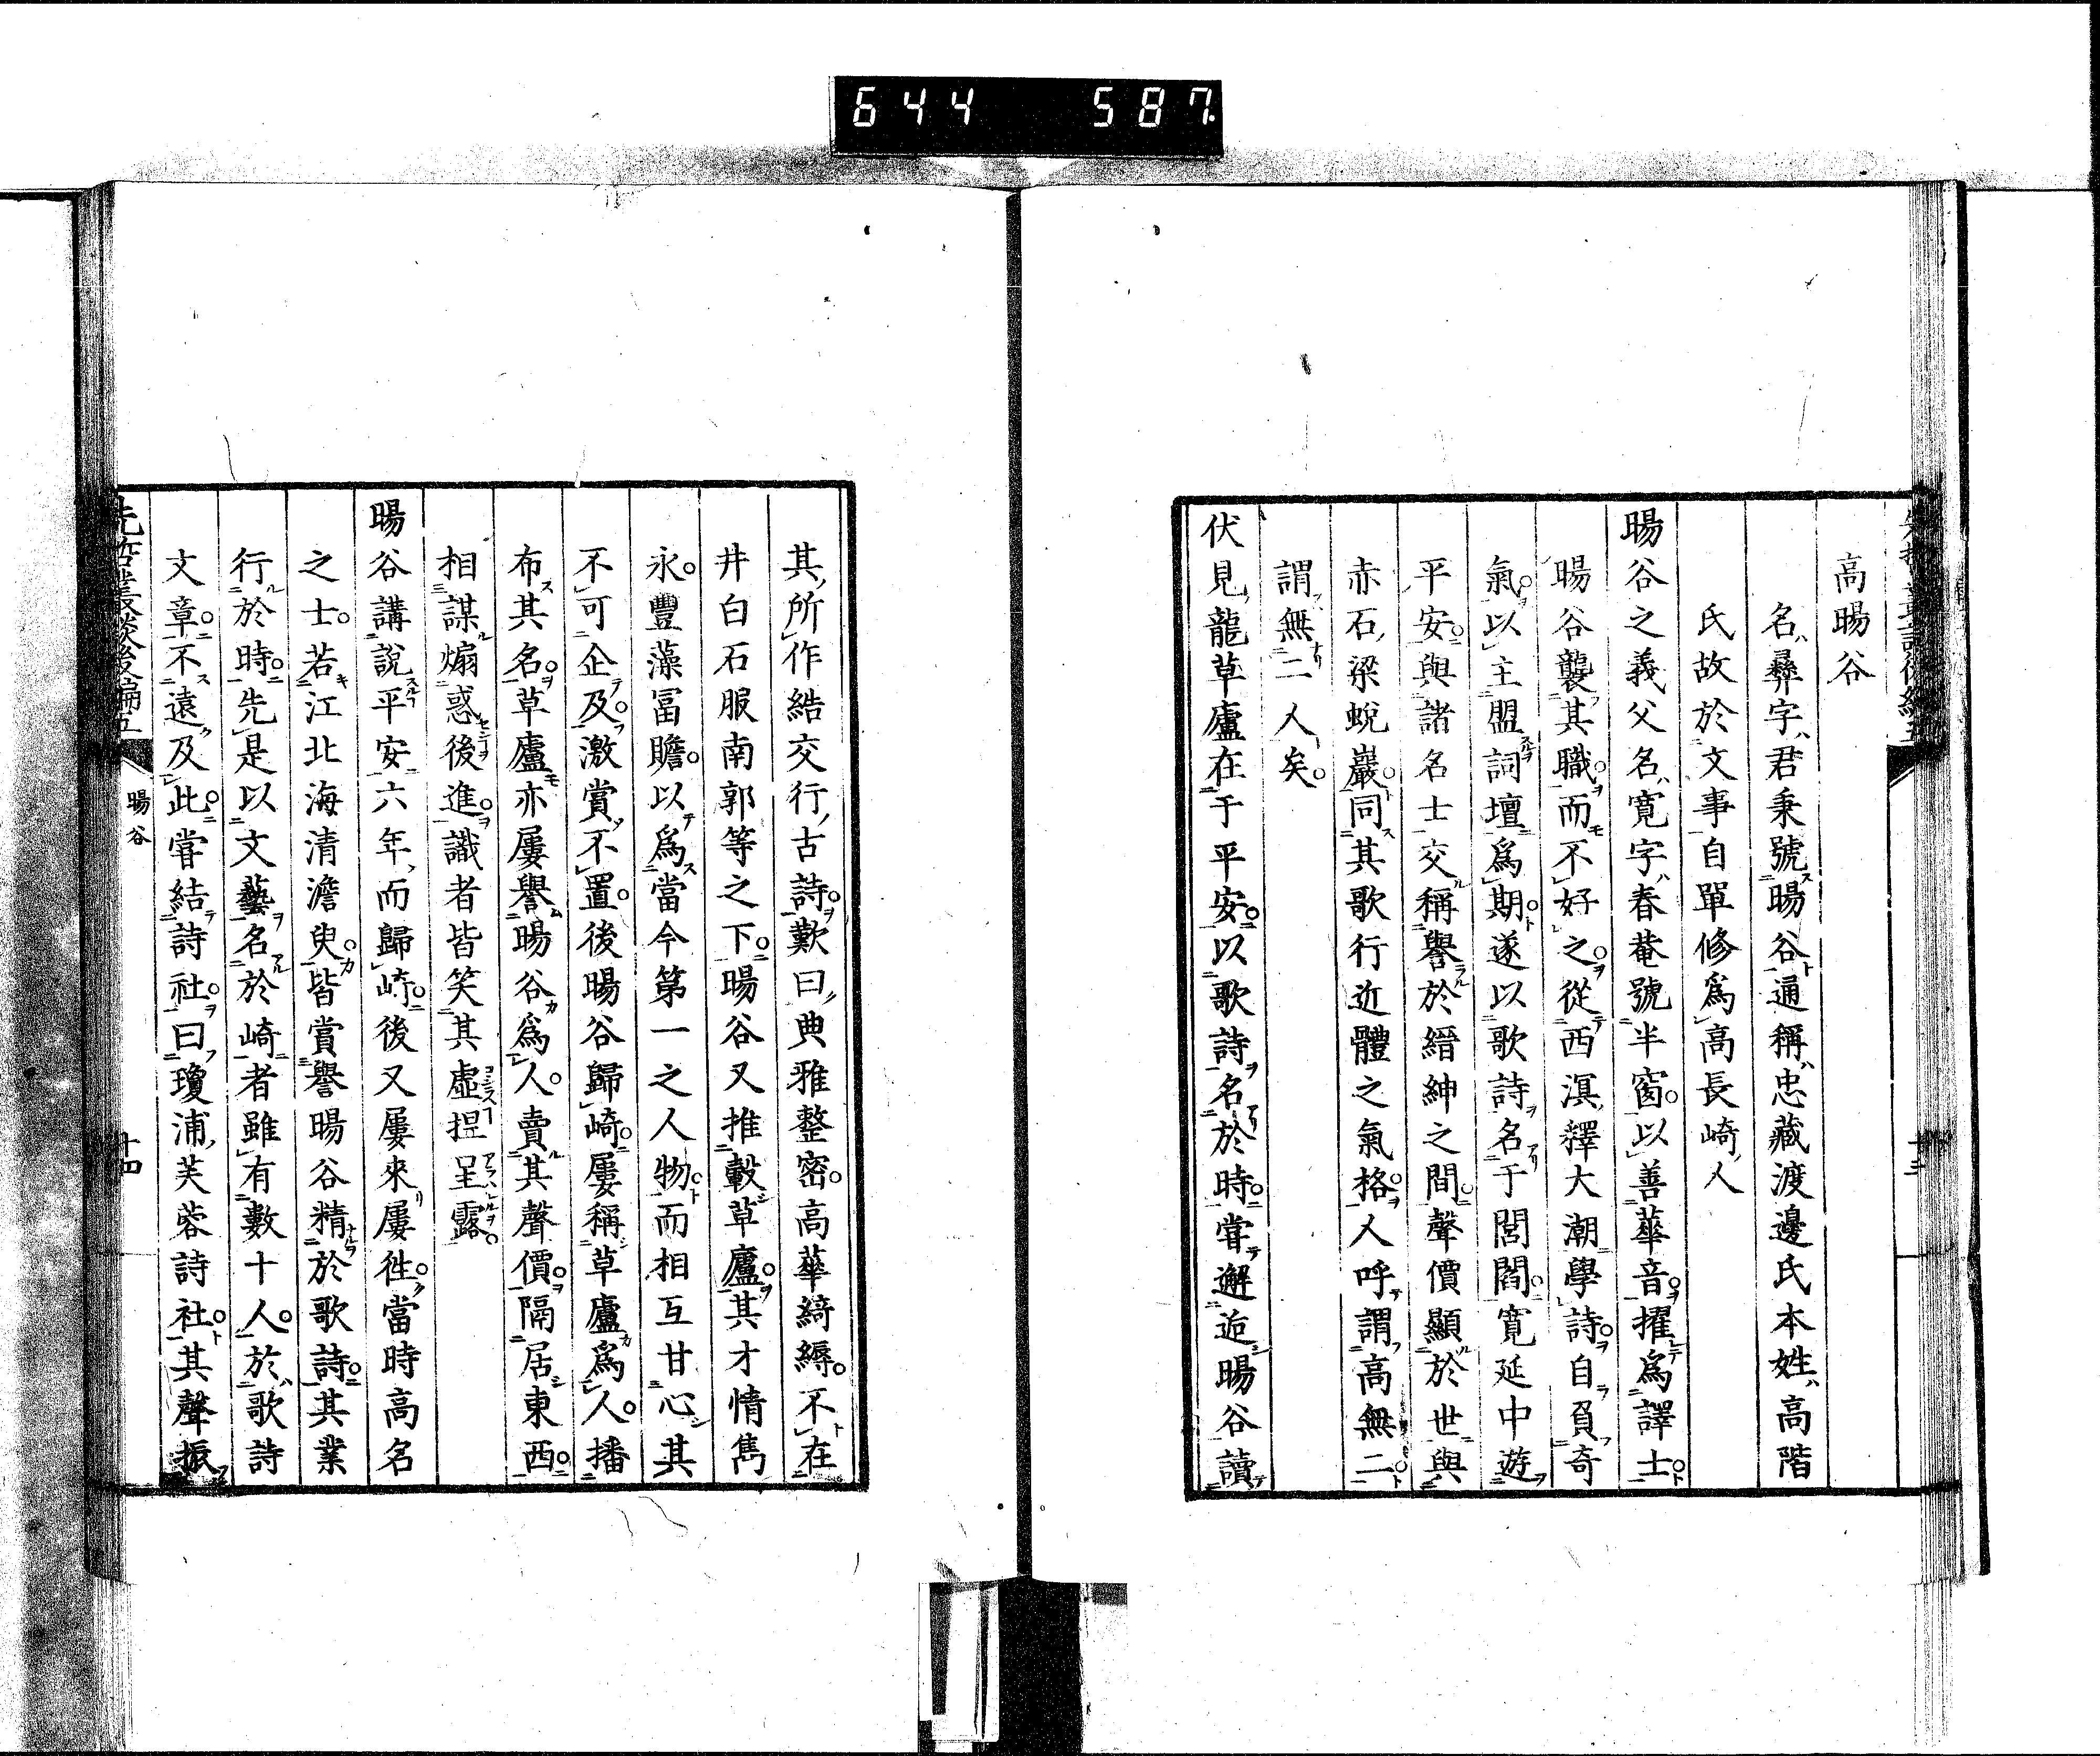 644 587
高暘谷
名彝字君秉號暘谷通稱忠藏渡邊氏本姓高階
氏故於文事自單修爲高長崎人
暘谷之義父名寬字春菴號半窗以善華音擢爲譯士
暘谷襲其職而不好之從西溟釋大潮學詩自負奇
氣以主盟詞壇爲期遂以歌詩名于閭閻寬延中遊
平安與諸名士交稱譽於縉紳之間聲價顯於世與
赤石梁蛻巖同其歌行近體之氣格人呼謂高無二
謂無二人矣
伏見龍草廬在于平安以歌詩名於時嘗邂逅暘谷讀
其所作結交行古詩歎曰典雅整密高華綺縟不在
井白石服南郭等之下暘谷又推轂草廬其才情雋
永豐藻冨贍以爲當今第一之人物而相互甘心其
不可企及激賞不置後暘谷歸崎屢稱草廬爲人播
布其名草廬亦屢譽暘谷爲人賣其聲價隔居東西
相謀煽惑後進識者皆笑其虛捏呈露
暘谷講說平安六年而歸崎後又屢來屢徃當時高名
之士若江北海清澹叟皆賞譽暘谷精於歌詩其業
行於時先是以文藝名於崎者雖有數十人於歌詩
文章不遠及此嘗結詩社曰瓊浦芙蓉詩社其聲振
先哲叢談後編五
暘谷
十四